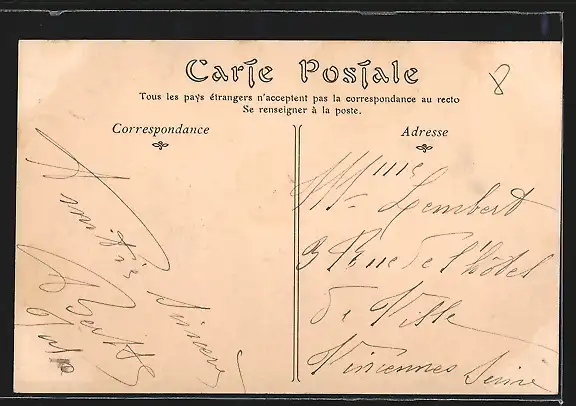 Carte Postale
Tous les pays étrangers n'acceptent pas la correspondance au recto
Se renseigner à la poste.
Correspondance
Adresse
8
Amitiés Sincères
Mme Lembert
3 Rue de l'hôtel
de Ville
Vincennes Seine